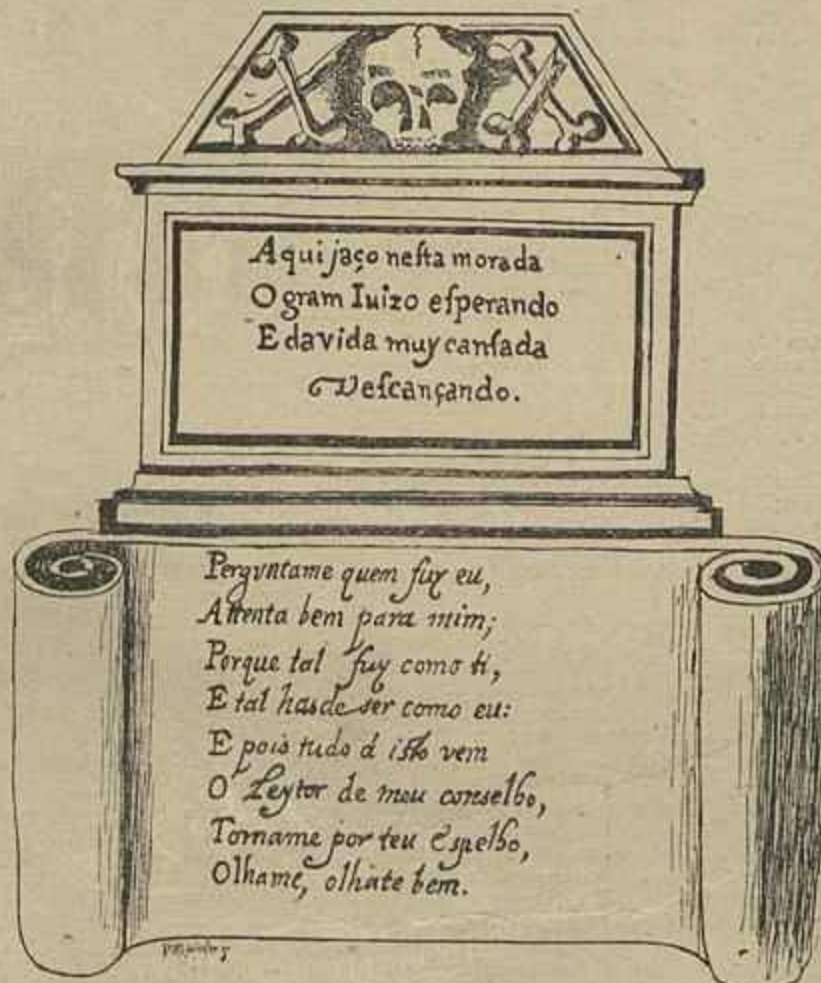 Aqui jaço neſta morada
O gram Iuizo eſperando
E da vida muy canſada
Deſcançando.
Pergvntame quem fuy eu,
Attenta bem para mim;
Porque tal fuy como ti,
E tal hasde ser como eu:
E pois tudo d' isto vem
O' Leytor de meu conselho,
Tomame por teu Espelho,
Olhame, olhate bem.